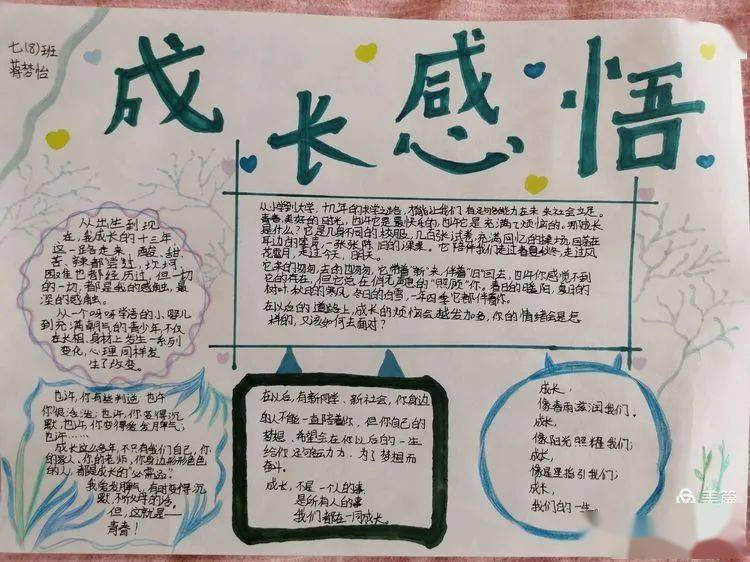 七(8)班
蒋梦怡
成长感悟
从出生到现
在,我成长的十三年
这一路走来 酸、甜、
苦、辣都尝过,坎坷、
困难也都经历过,但一切
的一切,都是我的感触,最
深的感触。
从一个呀呀学语的小婴儿
到充满朝气的青少年,不仅
在长相、身材上发生一系列
变化,心理同样发
生了改变。
从小学到大学,十几年的求学之路,才能让我们有足够的能力在未来社会立足。
青春,美好的时光,也许它是最快乐的,也许它是充满了烦恼的,那成长
是什么?它是几身不同的校服、几百张试卷、充满回忆的操场、回荡在
耳边的铃声、一张张陈旧的课桌。它陪伴我们走过春夏秋冬,走过风
花雪月,走过今天、明天。
它来的匆匆,去的也匆匆,它带着“新”来,伴着“旧”回去,也许你感觉不到
它的存在,但它总在悄无声息的“照顾”你。春日的暖阳,夏日的
树叶,秋日的寒风,冬日的白雪,一年四季它都伴着你。
在以后的道路上,成长的烦恼会越发加多,你的情绪会是怎
样的,又该如何去面对?
也许,你有些判逆,也许
你很活泼;也许,你变得沉
默,也许,你变得爱发月卑气;
也许……
成长这么多年,不只有我们自己,你
的家人,你的老师,你身边形形色色
的人,都是成长的“必需品”。
我爱发月卑气,有时变得沉
默,不仅样的路。
但,这就是——
青春!
在以后,有新同学、新社会,你身边
的人不能一直陪着你,但你自己的
梦想、希望会在你以后的一生
给你足够动力,为了梦想而
奋斗。
成长,不是一个人的事,
是所有人的事
我们都在一同成长。
成长,
像春雨滋润我们,
成长,
像阳光照耀我们;
成长,
像星星指引我们;
成长,
我们的一生。
美篇